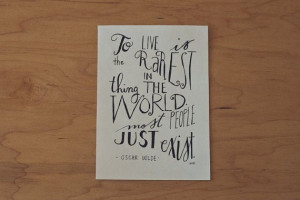 To LIVE is
the RAREST
thing IN THE
WORLD.
most PEOPLE
JUST exist.
- OSCAR WILDE